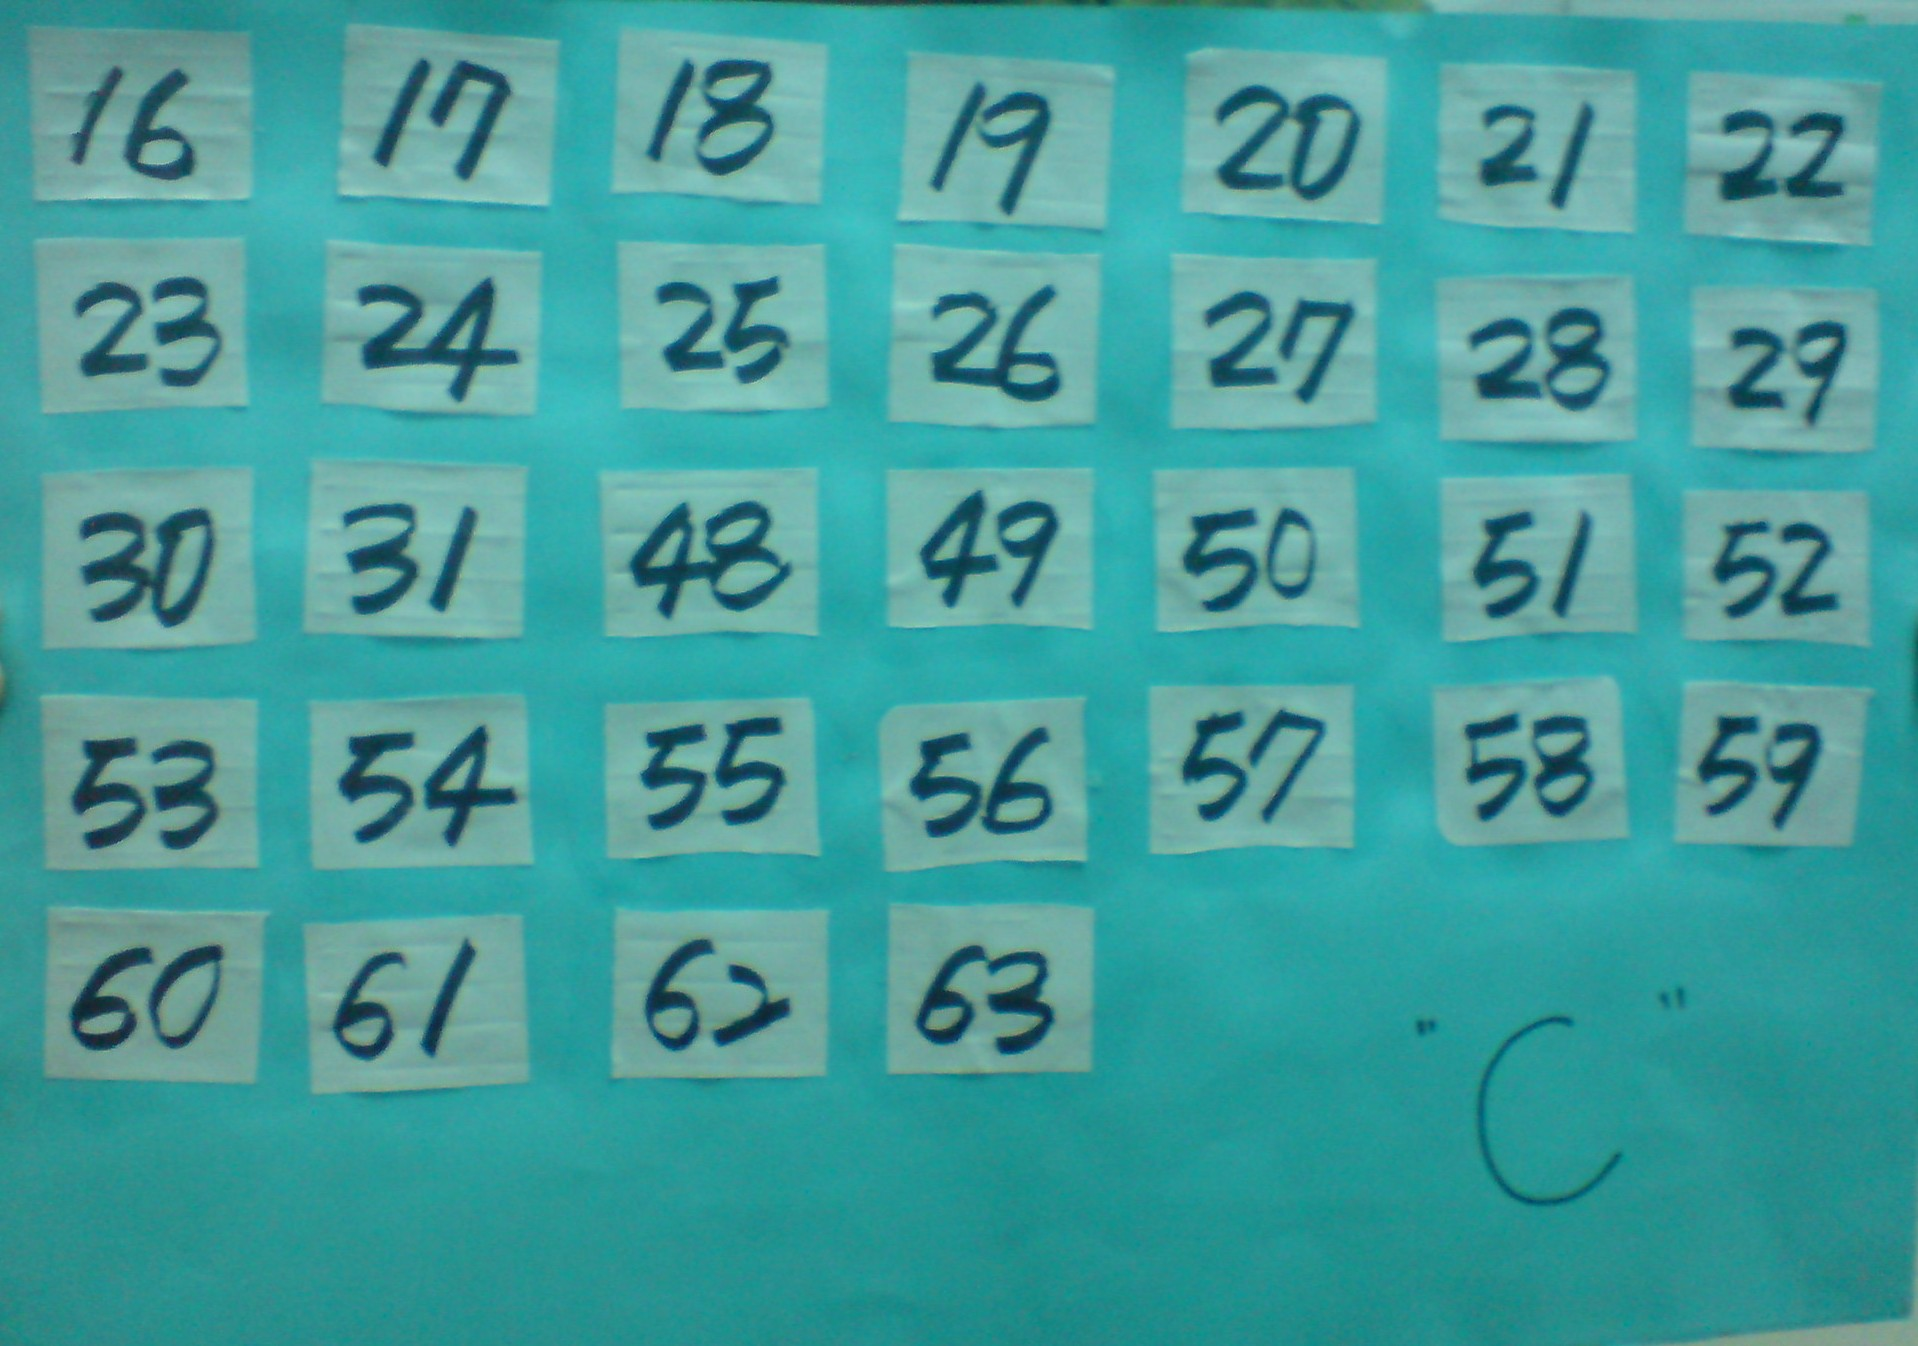 16 17 18 19 20 21 22
23 24 25 26 27 28 29
30 31 48 49 50 51 52
53 54 55 56 57 58 59
60 61 62 63
"C"